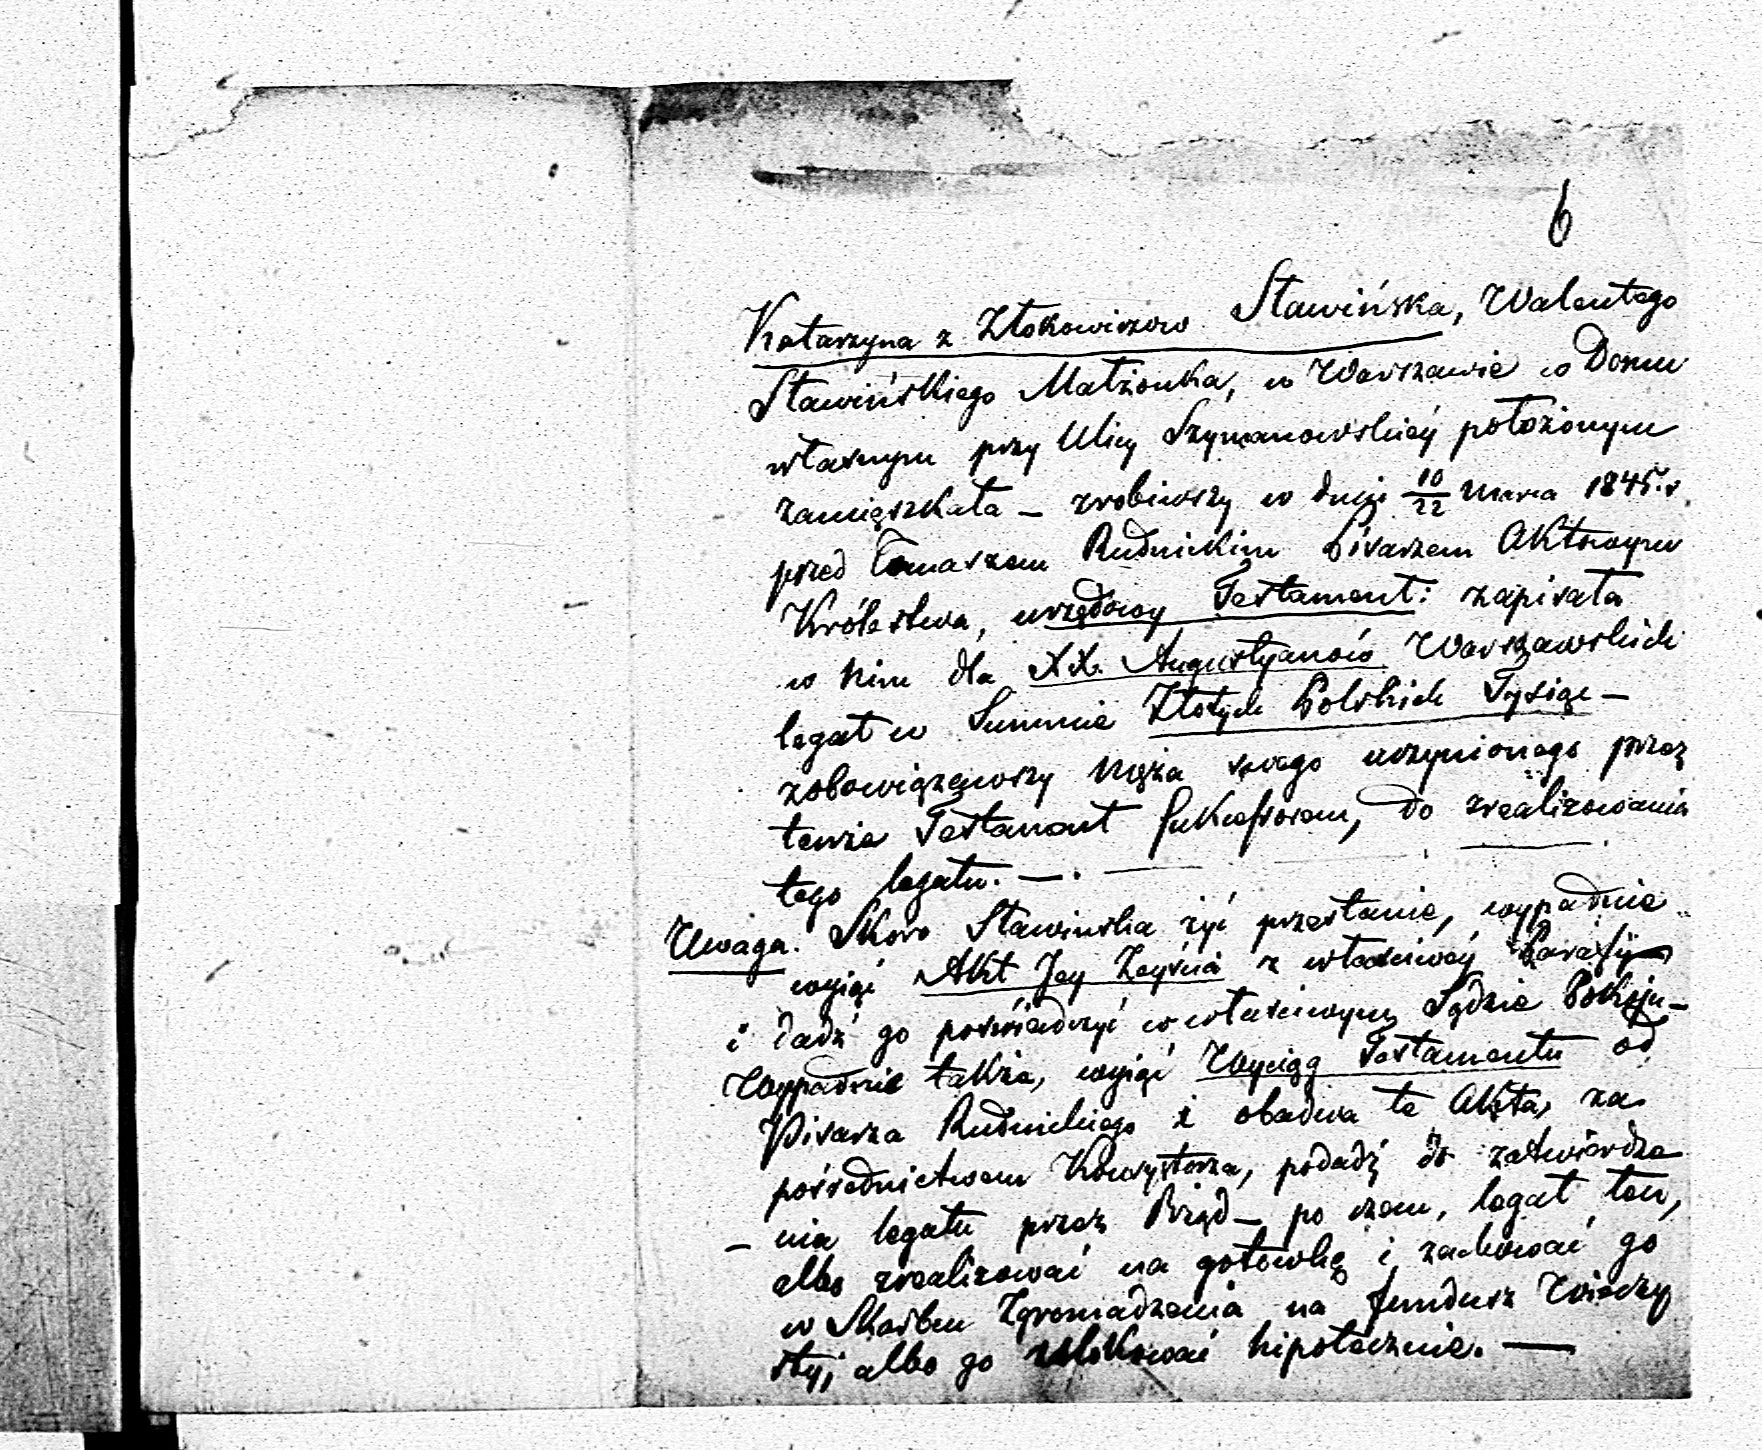 6
Katarzyna z Złotkowiczow Sławińska, Walentego
Sławińskiego Małżonka, w Warszawie w Domu
własnym przy Ulicy Szymanowskiey położonym
zamięszkała – zrobiwszy w dniu 10/22 Marca 1845. r
przed Tomaszem Rudnickim Pisarzem Aktowym
Królestwa, urzędowy Testament: zapisała
w nim dla XX. Augustyanów Warszawskich
legat w Summie Złotych Polskich Tysiąc –
zobowiązawszy Męża swego uczynionego przez
tenże Testament sukcessorem, do zrealizowania
tego legatu. –.
Uwaga. Skoro Sławinska żyć przestanie, wypadnie
wyiąć Akt Jey Zeyścia z właściwéy Parafij
i dadź go poświadczyć w właściwym Sądzie Pokoju –
Wypadnie także, wyiąć Wyciąg Testamentu od
Pisarza Rudnickiego i obadwa te Akta, za
pośrednictwem Konsystorza, podadź do zatwierdze
– nia legatu przez Rząd – po czem, legat ten,
albo zrealizować na gotówkę i zachować go
w Skarbu Zgromadzenia na fundusz Wieczy
sty; albo go ulokować hipotecznie. —